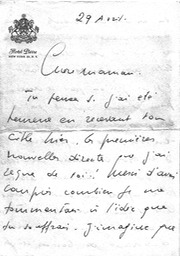 Hotel Pierre
NEW YORK 21, N.Y.
29 Avril.
Chère maman.
Tu penses si j'ai été
heureuse en recevant ton
câble hier, les premières
nouvelles directes que j'ai
reçue de toi. Merci d'avoir
compris combien je me
tourmentais à l'idée que
tu souffrais. J'imagine que